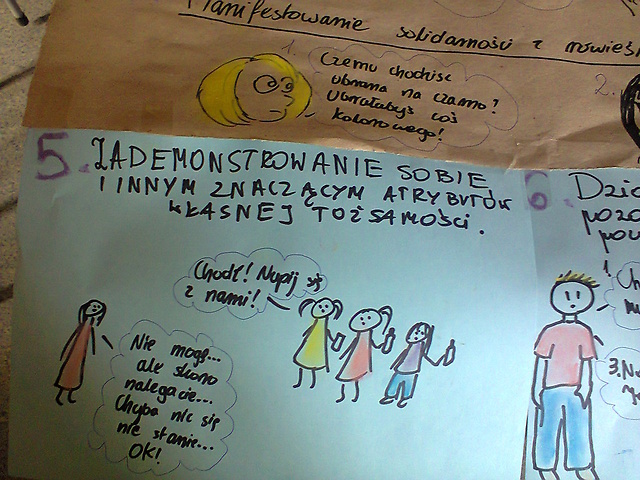 Manifestowanie solidarności z rówieśn
1.
Czemu chodzisz
ubrana na czarno?
Ubrałabyś coś
kolorowego!
2.
5. ZADEMONSTROWANIE SOBIE
I INNYM ZNACZĄCYM ATRYBUTÓW
WŁASNEJ TOŻSAMOŚCI.
Chodź! Napij się
z nami!
Nie mogę...
ale skoro
nalegacie...
Chyba nic się
nie stanie...
OK!
6.
1. Ch
3. N